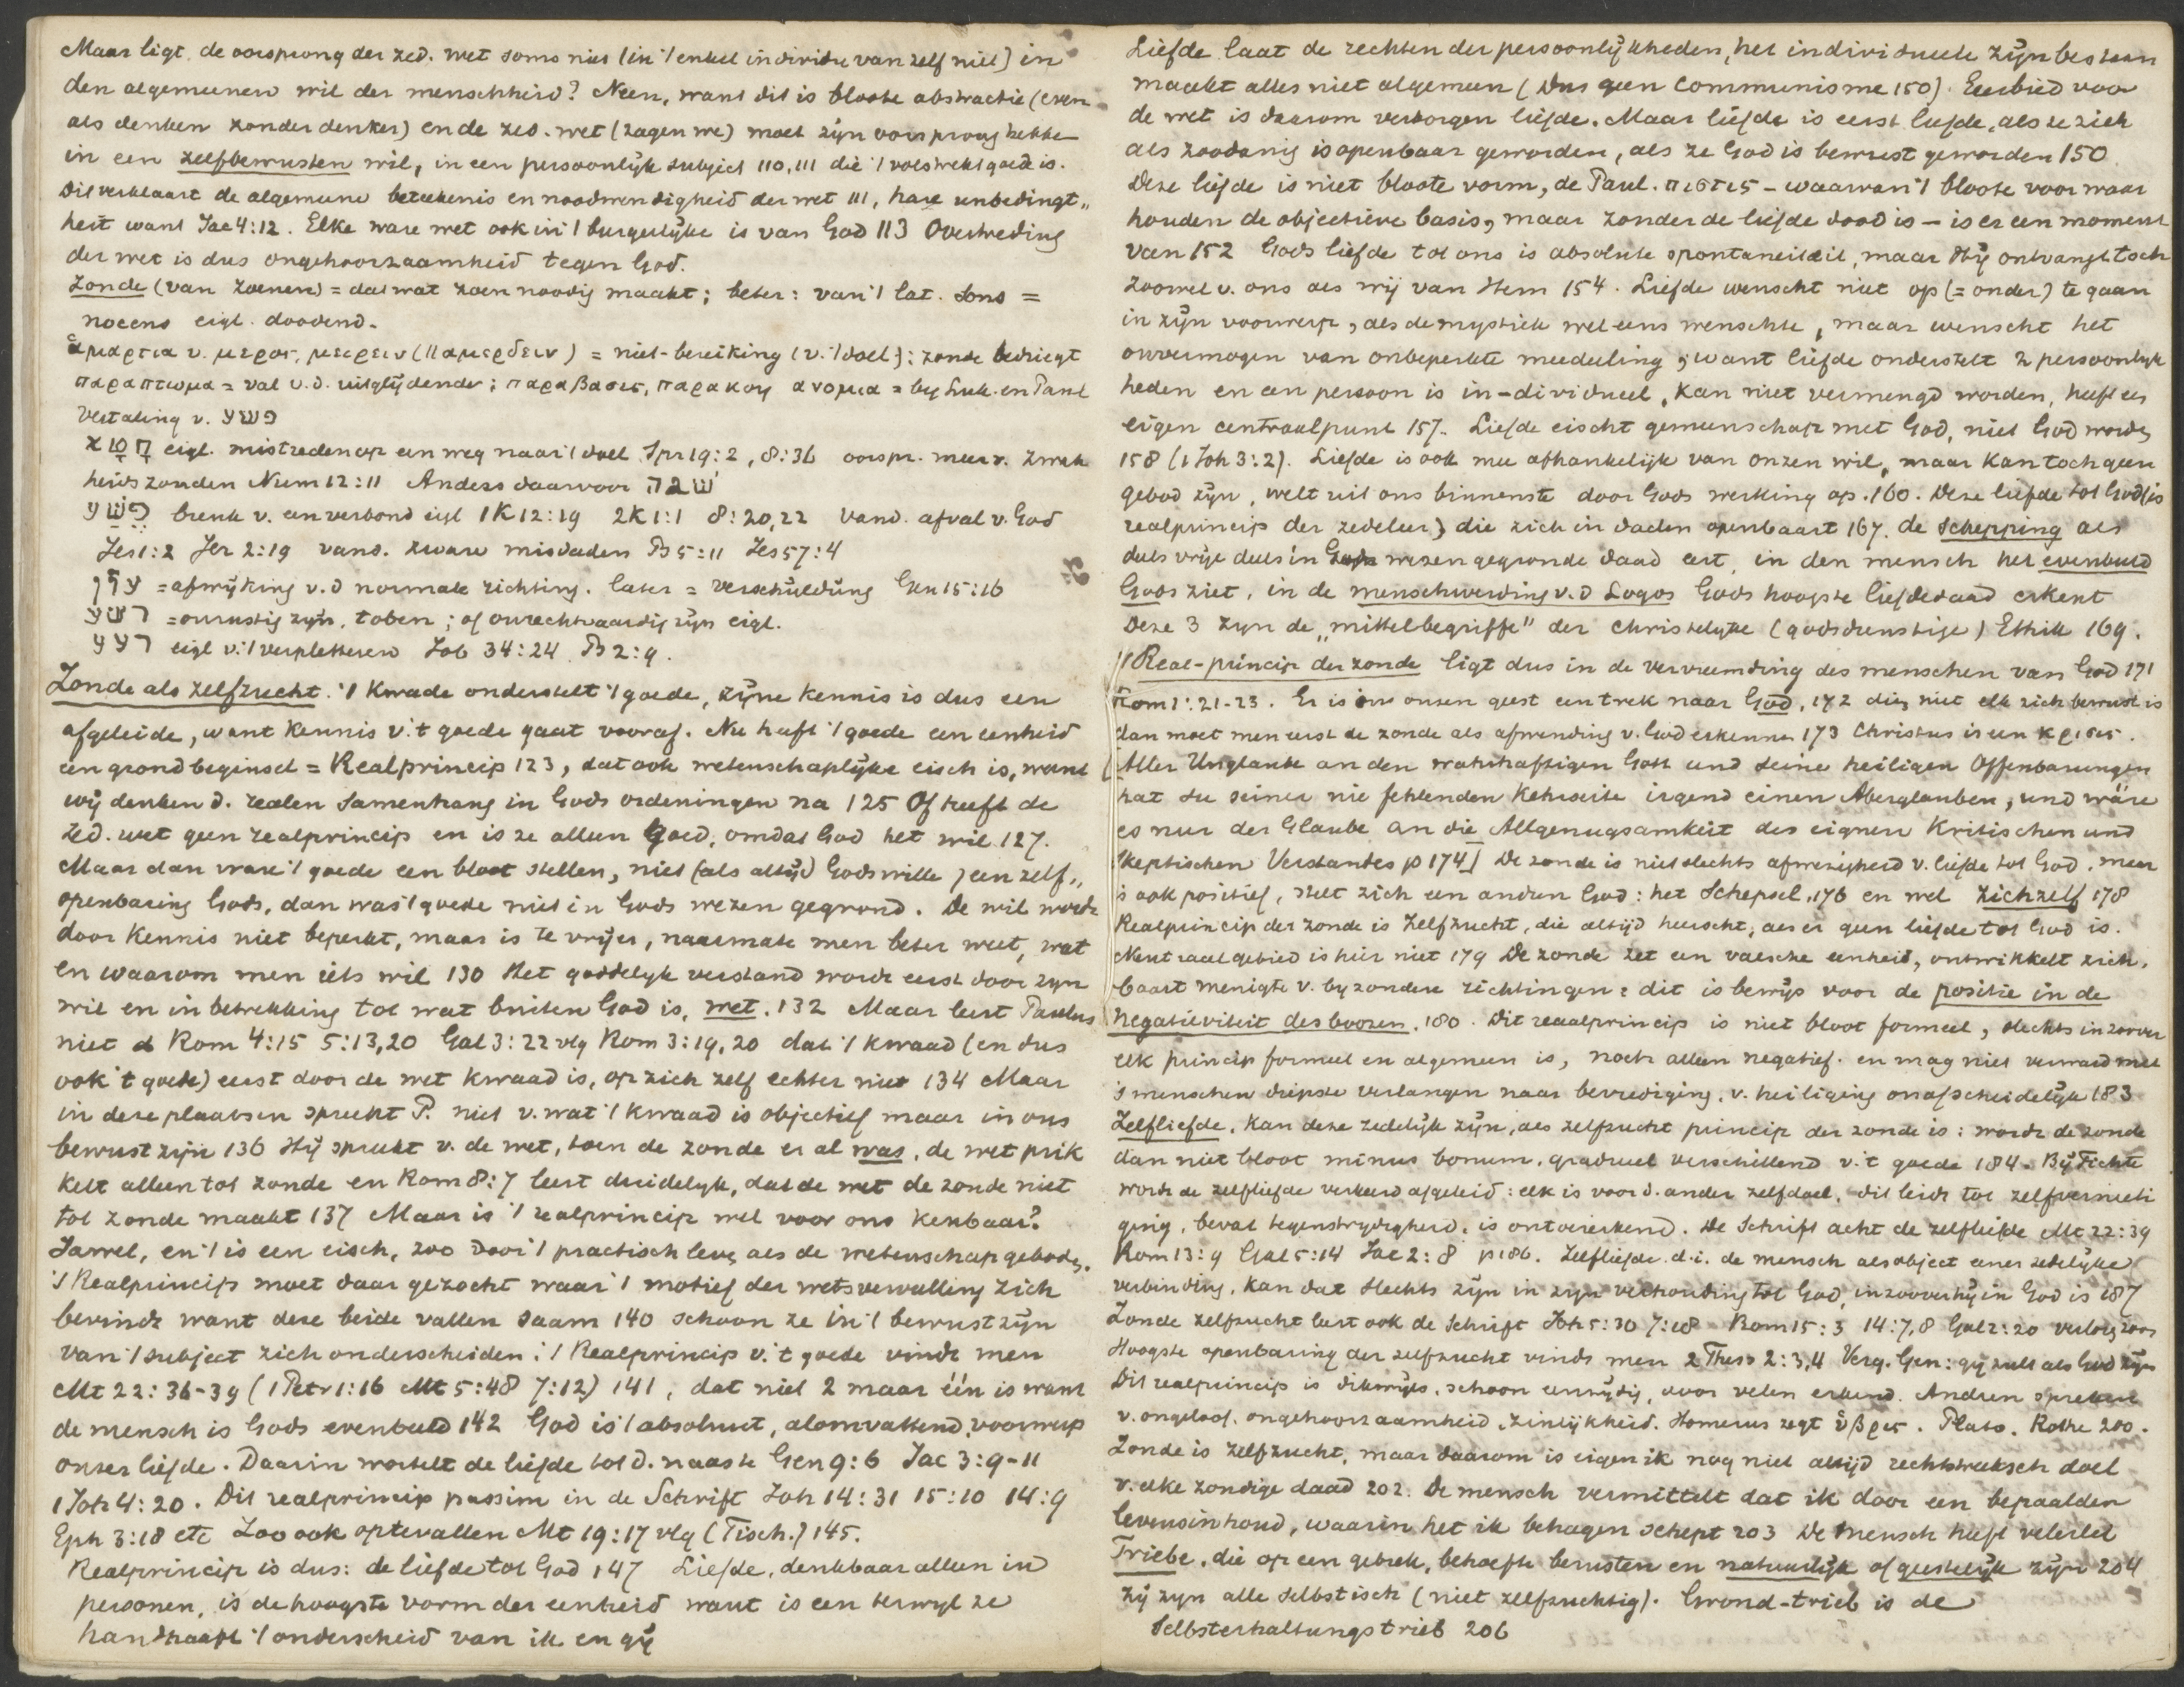 Maar ligt de oorsprong der zed. wet soms niet (in 't enkel individu van zelf niet) in
den algemeenen wil der menschheid? Neen, want dit is bloote abstractie (even
als denken zonder denker) en de zed. wet (zagen we) moet zijn oorsprong hebben
in een zelfbewusten wil, in een persoonlijk subject 110, 111 die 't volstrekt goede is.
Dit verklaart de algemeene beteekenis en noodwendigheid der wet 111, hare onbedingt„
heit want Jac 4:12. Elke ware wet ook in 't burgerlijke is van God 113 Overtreding
der wet is dus ongehoorzaamheid tegen God.
Zonde (van zoenen) = dat wat zoen noodig maakt; beter: van 't lat. sons =
nocens eigl. doodend.
ἁμαρτια v. μερος, μειρειν (παμερδειν) = niet-bereiking (v. 't doel): zonde bedriegt
παραπτωμα = val v.d. uitglijdende; παραβασις, παρακοη ανομια = by Luk. en Paul
vertaling v. פשע
חטא eigl. mistreden op een weg naar 't doel Spr 19:2, 8:36 oorspr. meer v. zwak
heids zonden Num 12:11 Anders daarvoor שגה
פשע breuk v. een verbond eigl 1K 12:19 2K 1:1 8:20,22 vand. afval v. God
Jes 1:2 Jer 2:19 vand. zware misdaden Ps 5:11 Jes 57:4
עון = afwijking v.d normale richting. later = verschuldüng Gen 15:16
רשע = onrustig zijn, toben; of onrechtvaardig zijn eigl.
רעע eigl v. 't verpletteren Job 34:24 Ps 2:9.
Zonde als zelfzucht. 't Kwade onderstelt 't goede, zijne kennis is dus een
afgeleide, want kennis v. 't goede gaat vooraf. Nu heeft 't goede een eenheid
een grondbeginsel = Realprincip 123, dat ook wetenschaplijke eisch is, want
wij denken d. realen samenhang in Gods ordeningen na 125 Of heeft de
zed. wet geen realprincip en is ze alleen goed, omdat God het wil 127.
Maar dan ware 't goede een bloot stellen, niet (als altijd Gods wille) een zelf„
openbaring Gods, dan was 't goede niet in Gods wezen gegrond. De wil wordt
door kennis niet beperkt, maar is te vrijer, naarmate men beter weet, wat
en waarom men iets wil 130 Het goddelijk verstand wordt eerst door zijn
wil en in betrekking tot wat buiten God is, wet. 132 Maar leert Paulus
niet Rom 4:15 5:13,20 Gal 3:22 vlg Rom 3:19,20 dat 't kwaad (en dus
ook 't goede) eerst door de wet kwaad is, op zich zelf echter niet 134 Maar
in deze plaatsen spreekt P. niet v. wat 't kwaad is objectief maar in ons
bewustzijn 136 Hij spreekt v. de wet, toen de zonde er al was, de wet prik
kelt alleen tot zonde en Rom 8:7 leert duidelijk, dat de wet de zonde niet
tot zonde maakt 137 Maar is 't realprincip wel voor ons kenbaar?
Jawel, en 't is een eisch, zoo door 't practisch leven als de wetenschap geboden.
't Realprincip moet daar gezocht waar 't motief der wetsvervulling zich
bevindt want deze beide vallen saam 140 schoon ze in 't bewustzijn
van 't subject zich onderscheiden. 't Realprincip v. 't goede vindt men
Mt 22:36-39 (1 Petr 1:16 Mt 5:48 7:12) 141, dat niet 2 maar één is want
de mensch is Gods evenbeeld 142 God is 't absoluut, alomvattend, voorwerp
onzer liefde. Daarin wortelt de liefde tot d. naaste Gen 9:6 Jac 3:9-11
1 Joh 4:20. Dit realprincip passim in de Schrift Joh 14:31 15:10 14:9
Eph 3:18 etc Zoo ook op te vatten Mt 19:17 vlg (Tisch.) 145.
Realprincip is dus: de liefde tot God 147 Liefde, denkbaar alleen in
personen, is de hoogste vorm der eenheid want is een terwyl ze
handhaaft 't onderscheid van ik en gij
Liefde laat de rechten der persoonlijkheden, het individueele zijn bestaan
maakt alles niet algemeen (dus geen Communisme 150). Eerbied voor
de wet is daarom verborgen liefde. Maar liefde is eerst liefde, als ze zich
als zoodanig is openbaar geworden, als ze God is bewust geworden 150.
Deze liefde is niet bloote vorm, de Paul. πιστις - waarvan 't bloote voor waar
houden de objectieve basis, maar zonder de liefde dood is - is er een moment
van 152 Gods liefde tot ons is absolute spontaneiteit, maar Hij ontvangt toch
zoowel v. ons als wij van Hem 154. Liefde wenscht niet op (= onder) te gaan
in zijn voorwerp, als de mystiek wel eens wenschte, maar wenscht het
onvermogen van onbeperkte meedeeling, want liefde onderstelt 2 persoonlijk
heden en een persoon is in-dividueel, kan niet vermengd worden, heeft een
eigen centraalpunt 157. Liefde eischt gemeenschap met God, niet God worden
158 (1 Joh 3:2). Liefde is ook mee afhankelijk van onzen wil, maar kan toch geen
gebod zijn, welt uit ons binnenste door Gods werking op. 160. Deze liefde tot God (is
realprincip der zedeleer) die zich in daden openbaart 167. de schepping als
deels vrije deels in Gods wezen gegronde daad eert, in den mensch het evenbeeld
Gods ziet, in de menschwording v.d Logos Gods hoogste liefdedaad erkent
Deze 3 zijn de „mittelbegriffe" der christelyke (godsdienstige) Ethik 169.
't Real-princip der zonde ligt dus in de vervreemding des menschen van God 171
Rom 1:21-23. Er is in onzen geest een trek naar God, 172 die niet elk zich bewust is
dan moet men eerst de zonde als afwending v. God erkennen 173 Christus is een κρισις.
[Aller Unglaube an den wahrhaftigen Gott und seine heiligen Offenbarungen
hat zu seiner nie fehlenden Kehrseite irgend einen Aberglauben, und wäre
es nur der Glaube an die Allgenugsamkeit des eignen Kritischen und
Skeptischen Verstandes p 174] De zonde is niet slechts afwezigheid v. liefde tot God, maar
is ook positief, stelt zich een andren God: het Schepsel, 176 en wel zichzelf 178
Realprincip der zonde is Zelfzucht, die altijd heerscht, als er geen liefde tot God is.
Neutraal gebied is hier niet 179 De zonde zet een valsche eenheid, ontwikkelt zich,
baart menigte v. byzondere richtingen: dit is bewijs voor de positie in de
negativiteit des boozen. 180. Dit reaalprincip is niet bloot formeel, slechts in zoover
elk princip formeel en algemeen is, noch alleen negatief. en mag niet verward met
's menschen diepste verlangen naar bevrediging, v. heiliging onafscheidelijk 183
Zelfliefde. Kan deze zedelijk zijn, als zelfzucht princip der zonde is: wordt de zonde
dan niet bloot minus bonum, gradueel verschillend v. 't goede 184. Bij Fichte
wordt de zelfliefde verkeerd afgeleid: elk is voor d. ander zelfdoel, dit leidt tot zelfvernieti
ging, bevat tegenstrydigheid, is ontoereikend. De Schrift acht de zelfliefde Mt 22:39
Rom 13:9 Gal 5:14 Jac 2:8 p 186. Zelfliefde d.i. de mensch als object eener zedelijke
verbinding, kan dat slechts zijn in zijn verhouding tot God, in zooverre hij in God is 187
Zonde zelfzucht leert ook de Schrift Joh 5:30 7:18 Rom 15:3 14:7,8 Gal 2:20
Hoogste openbaring der zelfzucht vindt men 2 Thess 2:3,4 Verg. Gen: gij zult als God zijn
Dit realprincip is dikwijls, schoon eenzijdig, door velen erkend. Andren spreken
v. ongeloof, ongehoorzaamheid, zinlijkheid. Homerus zegt ὕβρις. Plato. Rothe 200.
Zonde is zelfzucht, maar daarom is eigen ik nog niet altijd rechtstreeksch doel
v. elke zondige daad 202. De mensch vermittelt dat ik door een bepaalden
levensinhoud, waarin het ik behagen schept 203 De mensch heeft velerlei
Triebe, die op een gebrek, behoefte berusten en natuurlijk of geestelijk zijn 204
Zij zijn alle selbstisch (niet zelfzuchtig). Grond-trieb is de
Selbsterhaltungstrieb 206